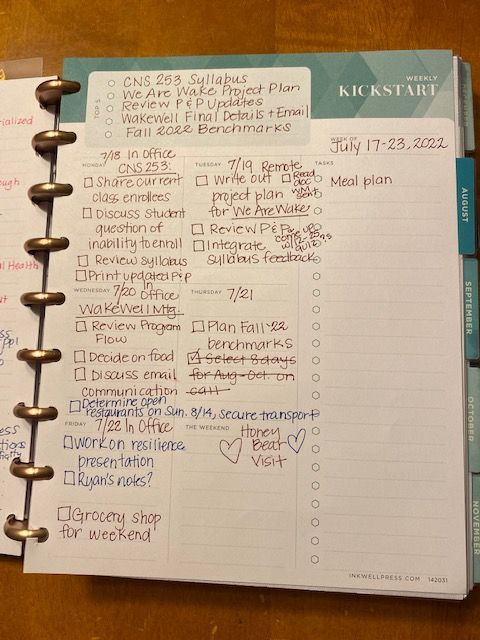 WEEKLY
KICKSTART
TOP 5
CNS 253 Syllabus
We Are Wake Project Plan
Review P&P Updates
WakeWell Final Details + Email
Fall 2022 Benchmarks
WEEK OF
July 17-23, 2022
MONDAY 7/18 In Office
CNS 253:
Share current
class enrollees
Discuss student
question of
inability to enroll
Review syllabus
Print updated P&P
TUESDAY 7/19 Remote
Write out
project plan
for We Are Wake
Read
doc
Review P&P
Integrate
syllabus feedback
TASKS
Meal plan
WEDNESDAY 7/20 In
Office
WakeWell Mtg:
Review Program
Flow
Decide on food
Discuss email
communication
Determine open
restaurants on Sun. 8/14, secure transport
THURSDAY 7/21
Plan Fall '22
benchmarks
Select 8 days
for Aug-Oct. on
call
FRIDAY 7/22 In Office
Work on resilience
presentation
Ryan's notes?
Grocery shop
for weekend
THE WEEKEND
Honey
Beat
Visit
INKWELLPRESS.COM 142031
AUGUST
SEPTEMBER
OCTOBER
NOVEMBER